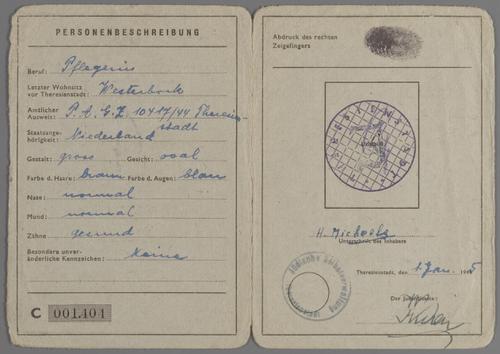 PERSONENBESCHREIBUNG
Beruf: Pflegerin
Letzter Wohnsitz
vor Theresienstadt: Westerbork
Amtlicher
Ausweis: P.A.G.Z. 10417/44 Theresien-
stadt
Staatsange-
hörigkeit: Niederland
Gestalt: gross Gesicht: oval
Farbe d. Haare: braun Farbe d. Augen: blau
Nase: normal
Mund: normal
Zähne: gesund
Besondere unver-
änderliche Kennzeichen: Keine
C 001404
Abdruck des rechten
Zeigefingers
H. Michaels
Unterschrift des Inhabers
Theresienstadt, den 1. Jan. 1945
Der